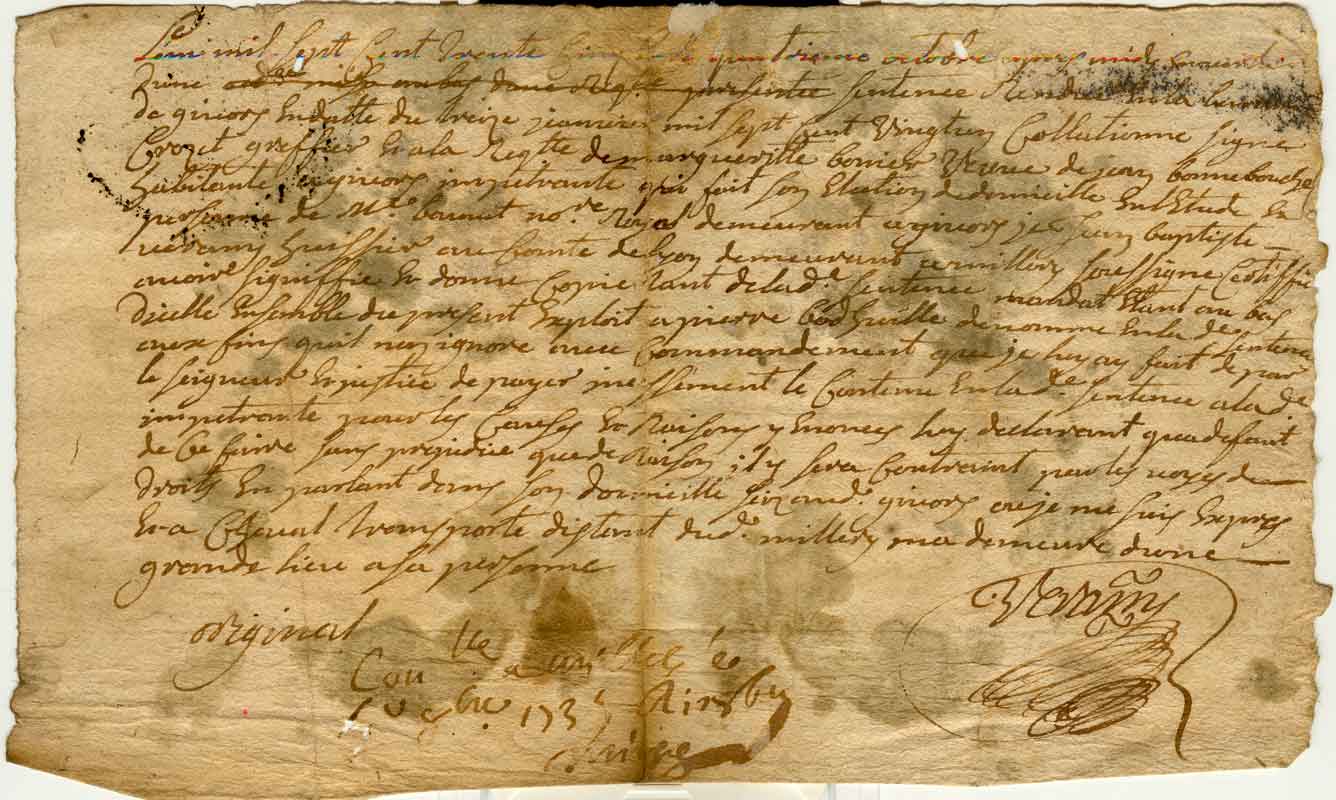 L'an mil sept cent trente cinq le quatrieme octobre apres midy En vertu
d'une sentence Rendue en la
de givors En datte du treize janvier mil sept cent vingt Collationne signe
Crozet greffier Et a la Reqte de margueritte bonier veuve de jean bonnebouche
habitante a givors impetrante qui fait son Election de domicille En l'Etude Et
personne de Mtre no.re Royal demeurant a givors je jean baptiste
Veramy huissier au Comte de lyon demeurant a millery soussigne Certiffie
avoir signiffie Et donne Copie tant de lad. sentence mandat Etant au bas
d'icelle Ensemble du present Exploit a pierre denomme En lad.e sentence
aux fins quil n'en ignore avec Commandement que je luy ay fait de par
le seigneur En justice de payer incessament le Contenu En lad.e sentence a lad.e
impetrante pour les Causes Et Raisons y Enoncees luy declarant qua defaut
de Ce faire sans prejudice que de Raison il y sera Contraint par les voyes de
droits En parlant dans son domicille size aud. givors ou je me suis Expres
Et a Cheval transporte distant dud. millery ma demeure d'une
grande lieue a sa personne
original
Veramy
Con.lle a
8bre 1735